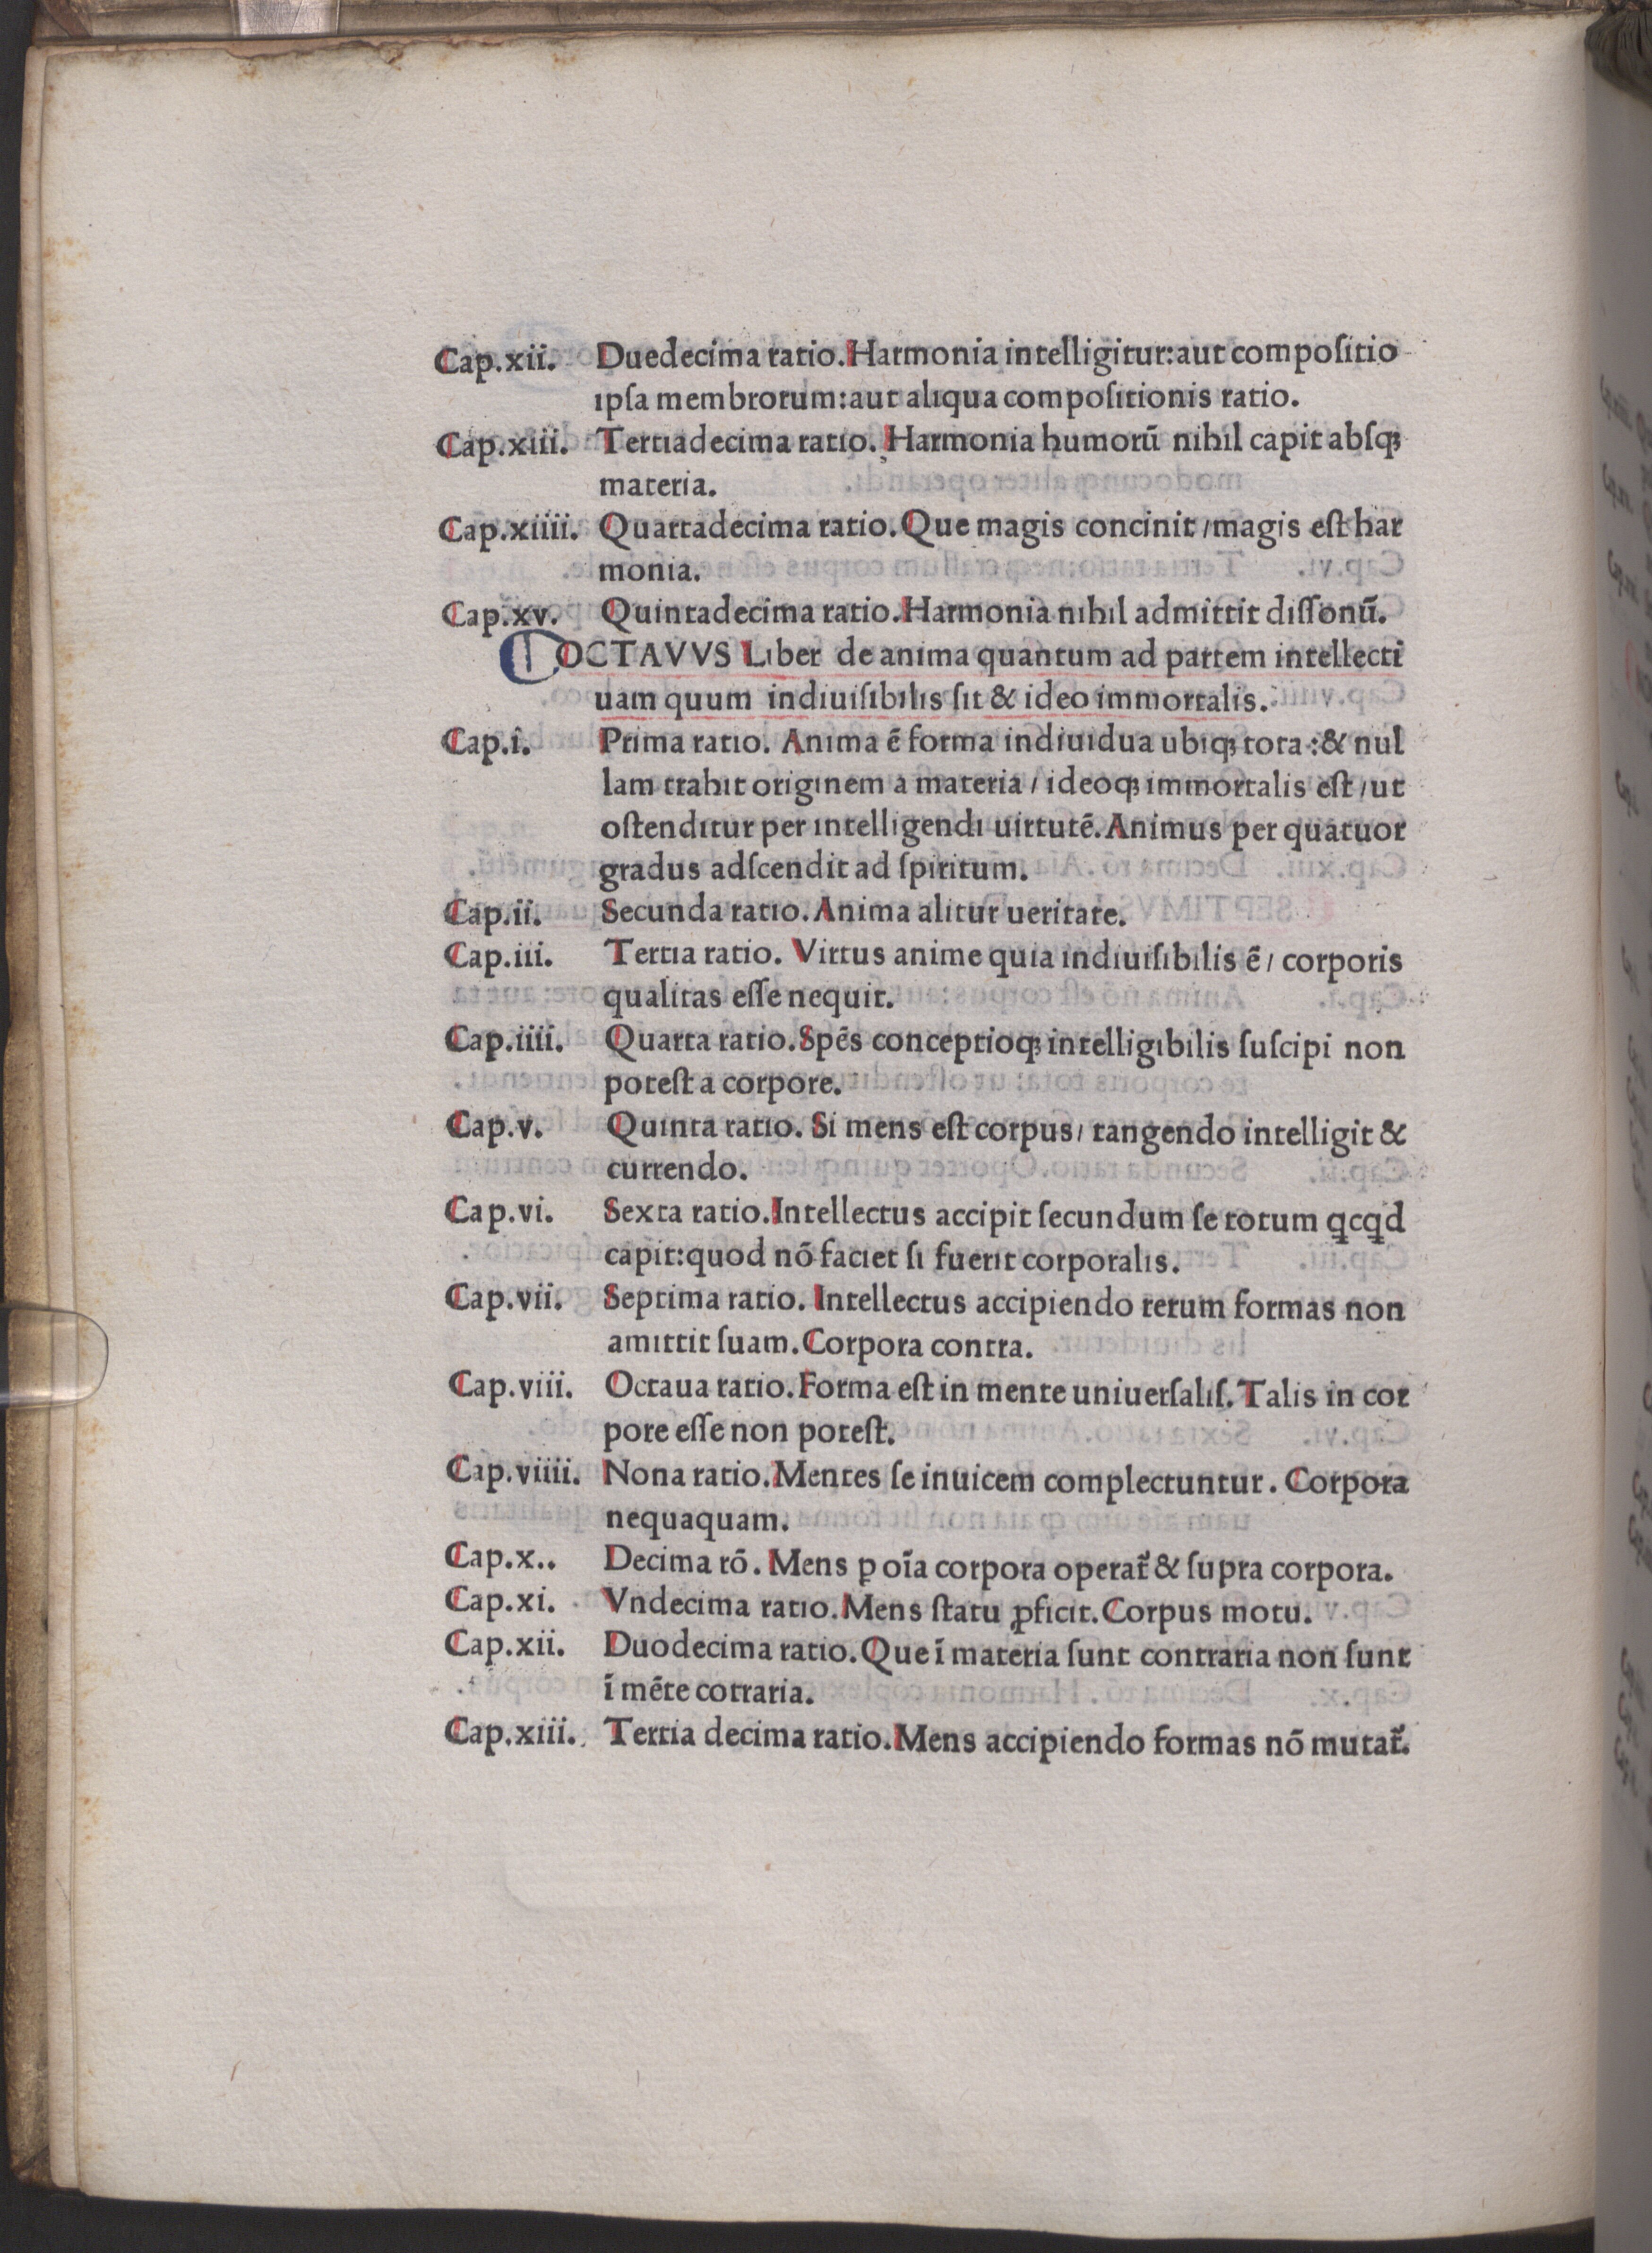 Cap.xii. Duedecima ratio.Harmonia intelligitur:aut compoſitio
ipſa membrorum:aut aliqua compoſitionis ratio.
Cap.xiii. Tertiadecima ratio. Harmonia humorū nihil capit abſqꝫ
materia.
Cap.xiiii. Quartadecima ratio.Que magis concinit / magis eſt har
monia.
Cap.xv. Quintadecima ratio.Harmonia nihil admittit diſſonū.
OCTAVVS Liber de anima quantum ad partem intellecti
uam quum indiuiſibilis ſit & ideo immortalis.
Cap.i. Prima ratio. Anima ē forma indiuidua ubiqꝫ tota :& nul
lam trahit originem a materia / ideoqꝫ immortalis eſt / ut
oſtenditur per intelligendi uirtutē.Animus per quatuor
gradus adſcendit ad ſpiritum.
Cap.ii. Secunda ratio.Anima alitur ueritate.
Cap.iii. Tertia ratio. Virtus anime quia indiuiſibilis ē / corporis
qualitas eſſe nequit.
Cap.iiii. Quarta ratio.Spēs conceptioqꝫ intelligibilis ſuſcipi non
poteſt a corpore.
Cap.v. Quinta ratio. Si mens eſt corpus / tangendo intelligit &
currendo.
Cap.vi. Sexta ratio.Intellectus accipit ſecundum ſe totum ꝗcꝗd
capit:quod nō faciet ſi fuerit corporalis.
Cap.vii. Septima ratio. Intellectus accipiendo rerum formas non
amittit ſuam.Corpora contra.
Cap.viii. Octaua ratio.Forma eſt in mente uniuerſaliſ.Talis in cor
pore eſſe non poteſt.
Cap.viiii. Nona ratio.Mentes ſe inuicem complectuntur. Corpora
nequaquam.
Cap.x.. Decima rō. Mens ꝑ oīa corpora operat̄ & ſupra corpora.
Cap.xi. Vndecima ratio.Mens ſtatu ꝓficit.Corpus motu.
Cap.xii. Duodecima ratio.Que ī materia ſunt contraria non ſunt
ī mēte cotraria.
Cap.xiii. Tertia decima ratio.Mens accipiendo formas nō mutat̄.